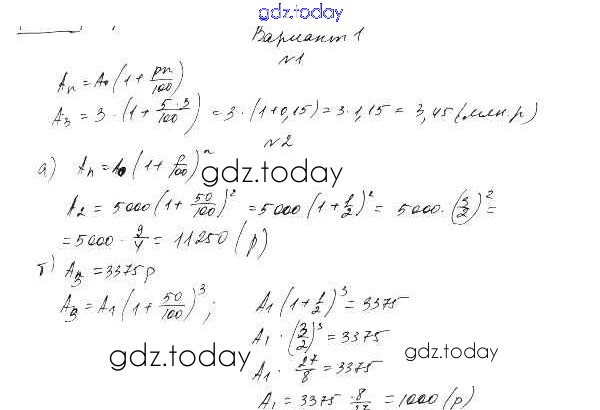 gdz.today
Вариант 1
№1
Aₙ = A₀ (1 + pn/100)
A₃ = 3 · (1 + 5·3/100) = 3 · (1 + 0,15) = 3 · 1,15 = 3,45 (млн.р)
№2
а) Aₙ = A₀ (1 + p/100)ⁿ
gdz.today
A₂ = 5000 (1 + 50/100)² = 5000 (1 + 1/2)² = 5000 · (3/2)² =
= 5000 · 9/4 = 11250 (р)
б) A₃ = 3375 р
A₃ = A₁ (1 + 50/100)³ ; A₁ (1 + 1/2)³ = 3375
A₁ · (3/2)³ = 3375
gdz.today
gdz.today
A₁ · 27/8 = 3375
A₁ = 3375 · 8/27 = 1000 (р)